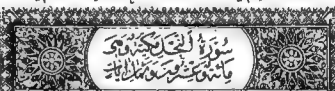 سُورَةُ النَّحْلِ مَكِّيَّةٌ وَهِيَ
مائة وعشرون وثمان آيات